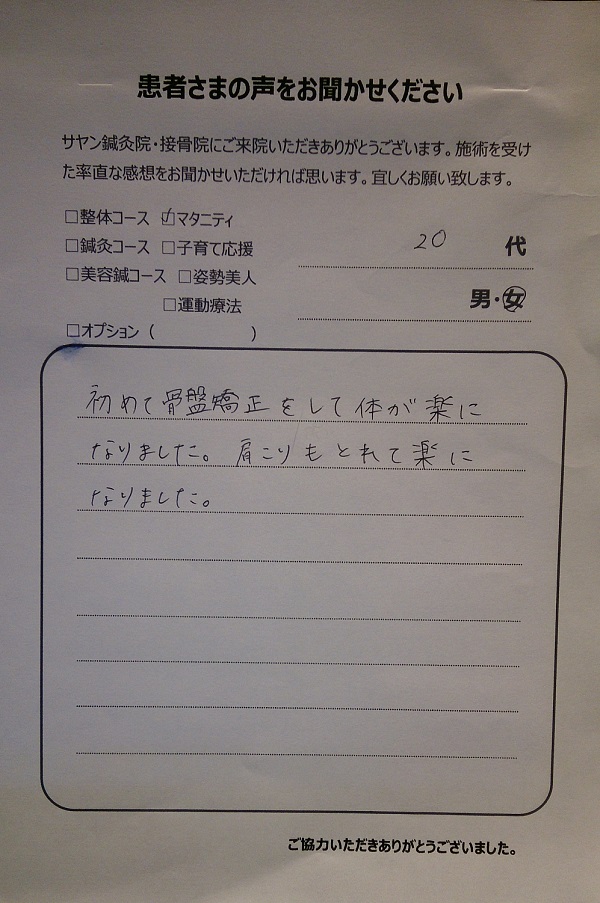 患者さまの声をお聞かせください
サヤン鍼灸院・接骨院にご来院いただきありがとうございます。施術を受け
た率直な感想をお聞かせいただければ思います。宜しくお願い致します。
□整体コース ☑マタニティ
□鍼灸コース □子育て応援
20 代
□美容鍼コース □姿勢美人
男・女
□運動療法
□オプション ( )
初めて骨盤矯正をして体が楽に
なりました。肩こりもとれて楽に
なりました。
ご協力いただきありがとうございました。